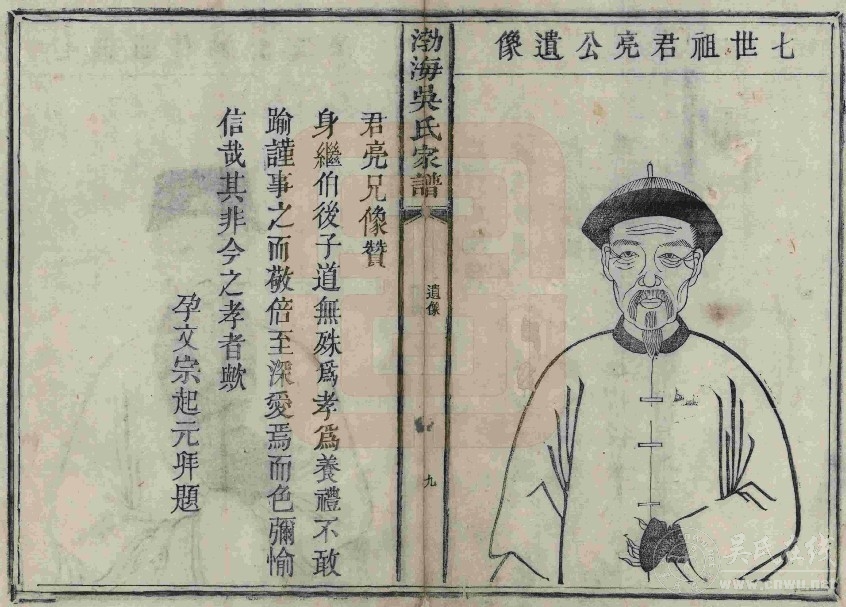 七世祖君亮公遺像
渤海吳氏家譜
遺像
九
君亮兄像贊
身繼伯後子道無殊爲孝爲養禮不敢
踰謹事之而敬倍至深愛焉而色彌愉
信哉其非今之孝者歟
孕文宗起元拜題
吴氏在线
www.cnwu.net